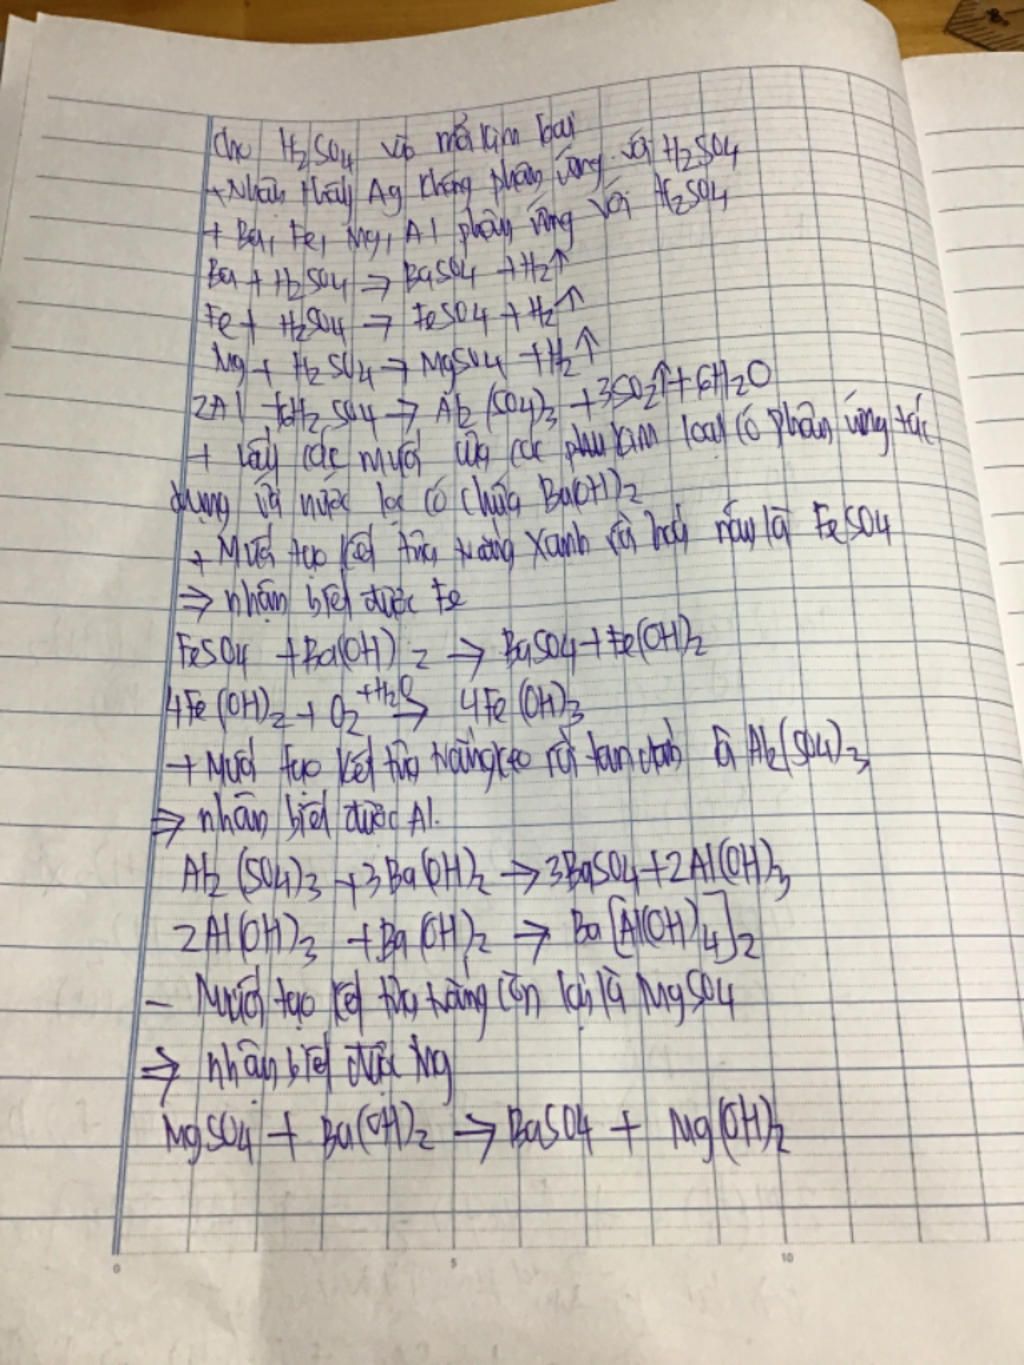 Cho H₂SO₄ vào mỗi kim loại
+ Nhận thấy Ag không phản ứng với H₂SO₄
+ Ba, Fe, Mg, Al phản ứng với H₂SO₄
Ba + H₂SO₄ → BaSO₄ + H₂↑
Fe + H₂SO₄ → FeSO₄ + H₂↑
Mg + H₂SO₄ → MgSO₄ + H₂↑
2Al + 6H₂SO₄ → Al₂(SO₄)₃ + 3SO₂↑ + 6H₂O
+ Lấy các muối của các kim loại có phản ứng tác
dụng với nước lọc có chứa Ba(OH)₂
+ Muối tạo kết tủa trắng xanh rồi hoá nâu là FeSO₄
⇒ nhận biết được Fe
FeSO₄ + Ba(OH)₂ → BaSO₄ + Fe(OH)₂
4Fe(OH)₂ + O₂ +H₂O → 4Fe(OH)₃
+ Muối tạo kết tủa trắng keo rồi tan dần là Al₂(SO₄)₃
⇒ nhận biết được Al.
Al₂(SO₄)₃ + 3Ba(OH)₂ → 3BaSO₄ + 2Al(OH)₃
2Al(OH)₃ + Ba(OH)₂ → Ba[Al(OH)₄]₂
- Muối tạo kết tủa trắng còn lại là MgSO₄
⇒ nhận biết được Mg
MgSO₄ + Ba(OH)₂ → BaSO₄ + Mg(OH)₂
0 5 10